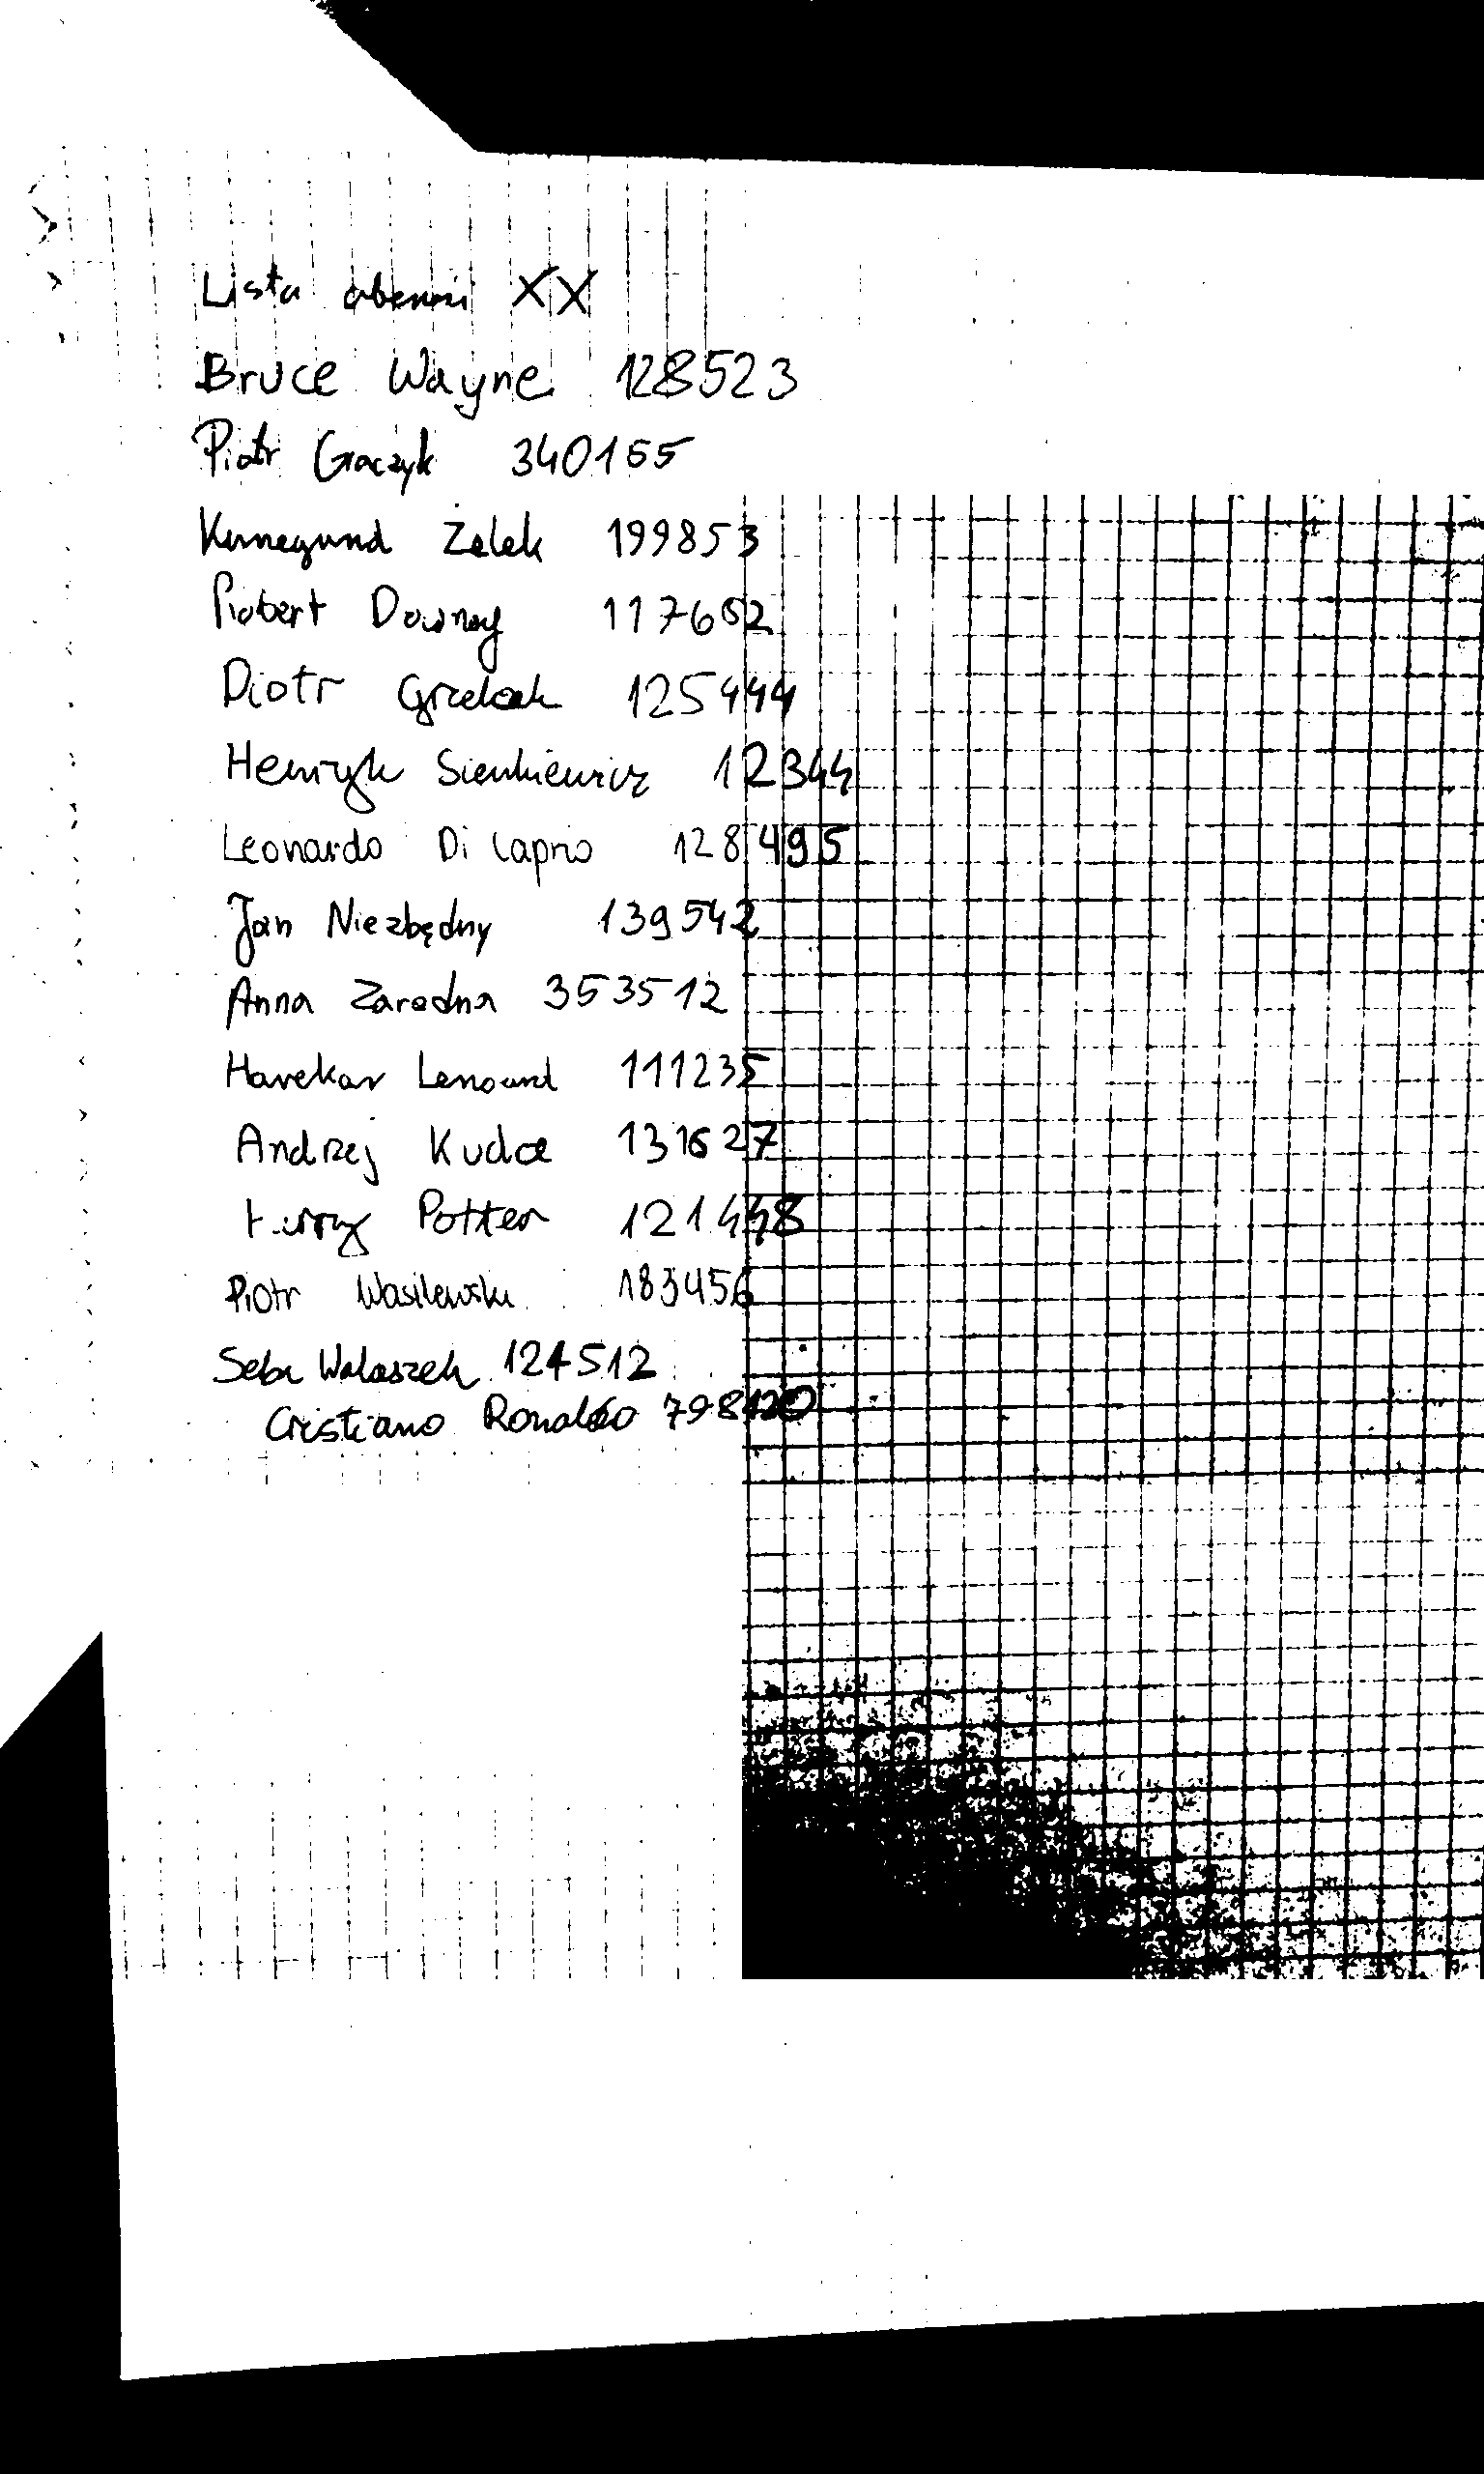 Lista XX
Bruce Wayne 128523
Piotr Graczyk 340165
Kunegund Zelek 199853
Robert Downey
Piotr 125444
Henryk Sienkiewicz 12344
Leonardo Di Caprio 128495
Jan Niezbędny 139542
Anna Zaradna 353512
Harekar Lenoard 111235
Andrzej 131627
Potter 121448
Piotr Wasilewski 183456
Seba Walaszek 124512
Cristiano Ronaldo